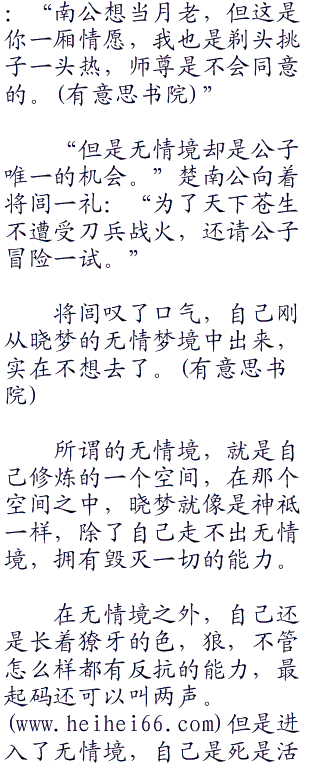 ：“南公想当月老，但这是
你一厢情愿，我也是剃头挑
子一头热，师尊是不会同意
的。(有意思书院)”
“但是无情境却是公子
唯一的机会。”楚南公向着
将闾一礼：“为了天下苍生
不遭受刀兵战火，还请公子
冒险一试。”
将闾叹了口气，自己刚
从晓梦的无情梦境中出来，
实在不想去了。(有意思书
院)
所谓的无情境，就是自
己修炼的一个空间，在那个
空间之中，晓梦就像是神祇
一样，除了自己走不出无情
境，拥有毁灭一切的能力。
在无情境之外，自己还
是长着獠牙的色，狼，不管
怎么样都有反抗的能力，最
起码还可以叫两声。
(www.heihei66.com)但是进
入了无情境，自己是死是活